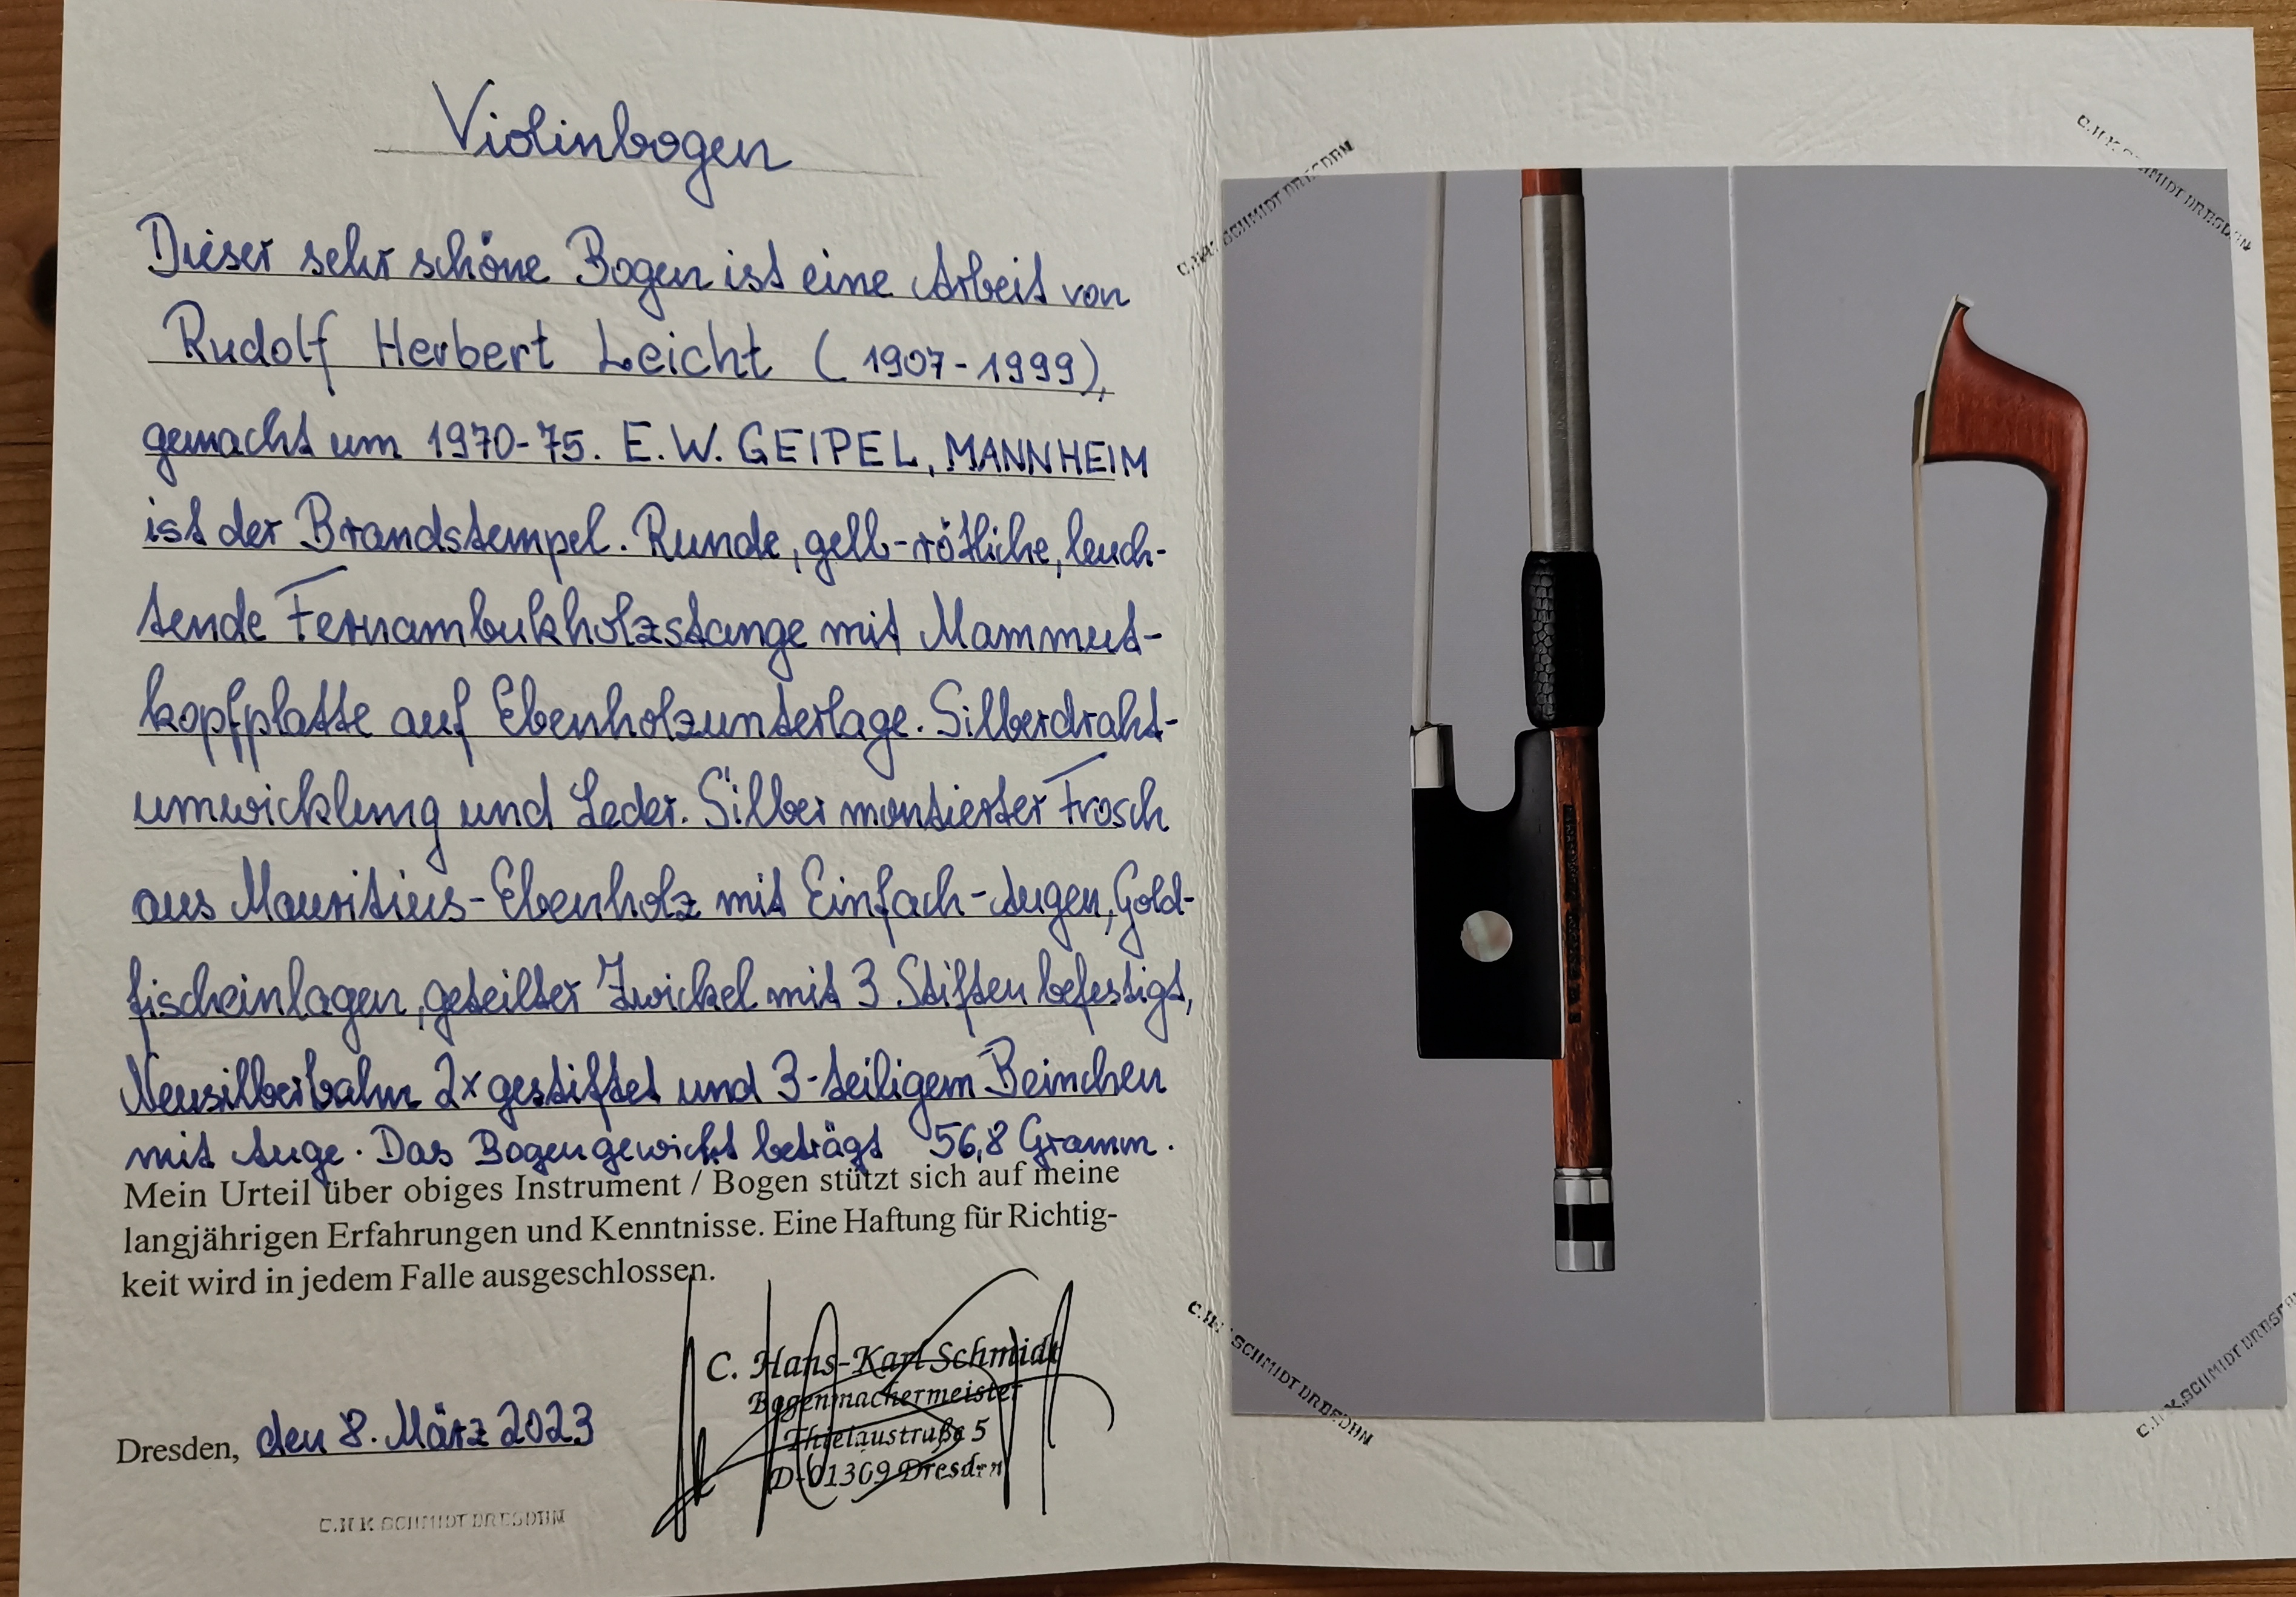 Violinbogen
Dieser sehr schöne Bogen ist eine Arbeit von
Rudolf Herbert Leicht (1907-1999),
gemacht um 1970-75. E.W. GEIPEL, MANNHEIM
ist der Brandstempel. Runde, gelb-rötliche, leuch-
tende Fernambukholzstange mit Mammut-
kopfplatte auf Ebenholzunterlage. Silberdraht-
umwicklung und Leder. Silber montierter Frosch
aus Mauritius-Ebenholz mit Einfach-Augen, Gold-
fischeinlagen, geteilter Zwickel mit 3 Stiften befestigt,
Neusilberbahn 2x gestiftet und 3-teiligem Beinchen
mit Auge. Das Bogengewicht beträgt 56,8 Gramm.
Mein Urteil über obiges Instrument / Bogen stützt sich auf meine
langjährigen Erfahrungen und Kenntnisse. Eine Haftung für Richtig-
keit wird in jedem Falle ausgeschlossen.
C. Hans-Karl Schmidt
Bogenmachermeister
Thielaustraße 5
D-01309 Dresden
Dresden, den 8. März 2023
C.H.K.SCHMIDT DRESDEN
C.H.K. SCHMIDT DRESDEN
C.H.K. SCHMIDT DRESDEN
C.H.K. SCHMIDT DRESDEN
C.H.K. SCHMIDT DRESDEN